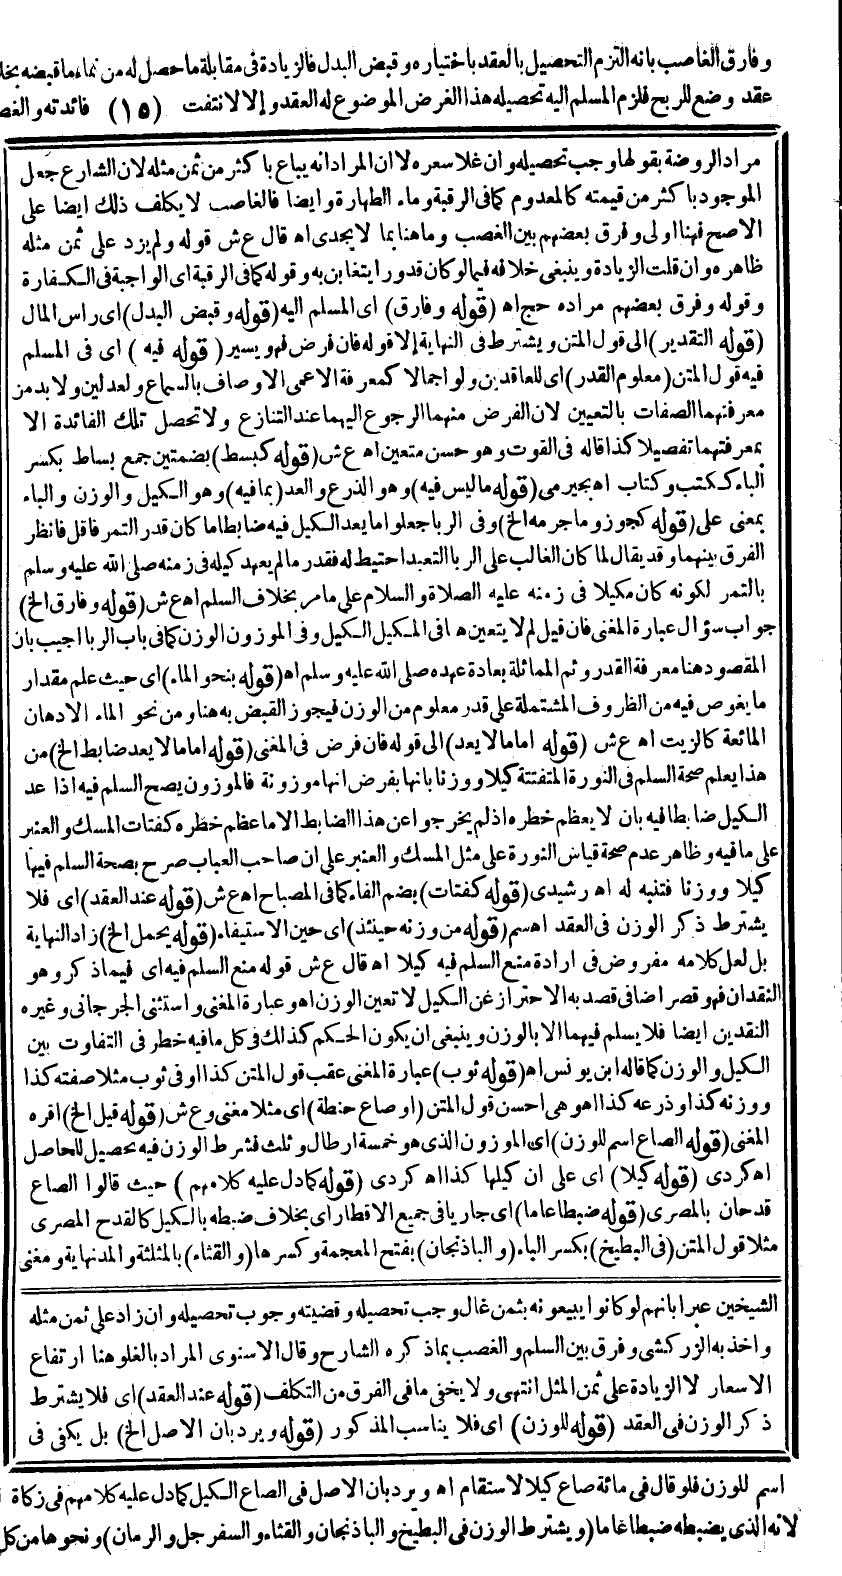 وفارق الغاصب بانه التزم التحصيل بالعقد باختياره وقبض البدل فالزيادة فى مقابلة ما حصل له من نماء ما قبضه بخلا
عقد وضع للربح فلزم المسلم اليه تحصيله هذا الغرض الموضوع له العقد وإلا لانتفت (١٥) فائدته والغص
مراد الروضة بقولها وجب تحصيله وان غلا سعره لا ان المراد انه يباع باكثر من ثمن مثله لان الشارع جعل
الموجود باكثر من قيمته كالمعدوم كما فى الرقبة وماء الطهارة وايضا فالغاصب لا يكلف ذلك ايضا على
الاصح فهنا اولى وفرق بعضهم بين الغصب وما هنا بما لا يجدى اه قال ع ش قوله ولم يزد على ثمن مثله
ظاهره وان قلت الزيادة وينبغى خلافه فيما لو كان قدرا يتغابن به وقوله كما فى الرقبة اى الواجبة فى الكفارة
وقوله وفرق بعضهم مراده حج اه (قوله وفارق) اى المسلم اليه (قوله وقبض البدل) اى راس المال
(قوله التقدير) الى قول المتن ويشترط فى النهاية إلا قوله فان فرض فهو يسير (قوله فيه) اى فى المسلم
فيه قول المتن (معلوم القدر) اى للعاقدين ولو اجمالا كمعرفة الاعمى الاوصاف بالسماع ولعدلين ولا بد من
معرفتهما الصفات بالتعيين لان الغرض منهما الرجوع اليهما عند التنازع ولا تحصل تلك الفائدة الا
بمعرفتهما تفصيلا كذا قاله فى القوت وهو حسن متعين اه ع ش (قوله كبسط) بضمتين جمع بساط بكسر
الباء ككتب وكتاب اه بجيرمى (قوله ما ليس فيه) وهو الذرع والعد (بما فيه) وهو الكيل والوزن والباء
بمعنى على (قوله كجوز وما جرمه الخ) وفى الربا جعلوا ما يعد الكيل فيه ضابطا ما كان قدر التمر فاقل فانظر
الفرق بينهما وقد يقال لما كان الغالب على الربا التعبد احتيط له فقدر ما لم يعهد كيله فى زمنه صلى الله عليه وسلم
بالتمر لكونه كان مكيلا فى زمنه عليه الصلاة والسلام على ما مر بخلاف السلم اه ع ش (قوله وفارق الخ)
جواب سؤال عبارة المغنى فان قيل لم لا يتعين هنا فى المكيل الكيل وفى الموزون الوزن كما فى باب الربا اجيب بان
المقصود هنا معرفة القدر وثم المماثلة بعادة عهده صلى الله عليه وسلم اه (قوله بنحو الماء) اى حيث علم مقدار
ما يغوص فيه من الظروف المشتملة على قدر معلوم من الوزن فيجوز القبض به هنا ومن نحو الماء الادهان
المائعة كالزيت اه ع ش (قوله اما ما لا يعد) الى قوله فان فرض فى المغنى (قوله اما ما لا يعد ضابط الخ) من
هذا يعلم صحة السلم فى النورة المتفتتة كيلا ووزنا بانها بفرض انها موزونة فالموزون يصح السلم فيه اذا عد
الكيل ضابطا فيه بان لا يعظم خطره اذ لم يخرجوا عن هذا الضابط الا ما عظم خطره كفتات المسك والعنبر
على ما فيه وظاهر عدم صحة قياس النورة على مثل المسك والعنبر على ان صاحب العباب صرح بصحة السلم فيها
كيلا ووزنا فتنبه له اه رشيدى (قوله كفتات) بضم الفاء كما فى المصباح اه ع ش (قوله عند العقد) اى فلا
يشترط ذكر الوزن فى العقد اه سم (قوله من وزنه حينئذ) اى حين الاستيفاء (قوله يحمل الخ) زاد النهاية
بل لعل كلامه مفروض فى ارادة منع السلم فيه كيلا اه قال ع ش قوله منع السلم فيه اى فيما ذكر وهو
النقدان فهو قصر اضافى قصد به الاحتراز عن الكيل لا تعين الوزن اه وعبارة المغنى واستثنى الجرجانى وغيره
النقدين ايضا فلا يسلم فيهما الا بالوزن وينبغى ان يكون الحكم كذلك فى كل ما فيه خطر فى التفاوت بين
الكيل والوزن كما قاله ابن يونس اه (قوله ثوب) عبارة المغنى عقب قول المتن كذا او فى ثوب مثلا صفته كذا
ووزنه كذا وذرعه كذا اه وهى احسن قول المتن (او صاع حنطة) اى مثلا مغنى وع ش (قوله قيل الخ) اقره
المغنى (قوله الصاع اسم للوزن) اى الموزون الذى هو خمسة ارطال وثلث فشرط الوزن فيه تحصيل للحاصل
اه كردى (قوله كيلا) اى على ان كيلها كذا اه كردى (قوله كما دل عليه كلامهم) حيث قالوا الصاع
قدحان بالمصرى (قوله ضبطا عاما) اى جاريا فى جميع الاقطار اى بخلاف ضبطه بالكيل كالقدح المصرى
مثلا قول المتن (فى البطيخ) بكسر الباء (والباذنجان) بفتح المعجمة وكسرها (والقثاء) بالمثلثة والمد نهاية ومغنى
الشيخين عبرا بانهم لو كانوا يبيعونه بثمن غال وجب تحصيله وقضيته وجوب تحصيله وان زاد على ثمن مثله
واخذ به الزركشى وفرق بين السلم والغصب بما ذكره الشارح وقال الاسنوى المراد بالغلو هنا ارتفاع
الاسعار لا الزيادة على ثمن المثل انتهى ولا يخفى ما فى الفرق من التكلف (قوله عند العقد) اى فلا يشترط
ذكر الوزن فى العقد (قوله للوزن) اى فلا يناسب المذكور (قوله ويرد بان الاصل الخ) بل يكفى فى
اسم للوزن فلو قال فى مائة صاع كيلا لاستقام اه ويرد بان الاصل فى الصاع الكيل كما دل عليه كلامهم فى زكاة
لانه الذى يضبطه ضبطا عاما (ويشترط الوزن فى البطيخ والباذنجان والقثاء والسفرجل والرمان) ونحوها من كل